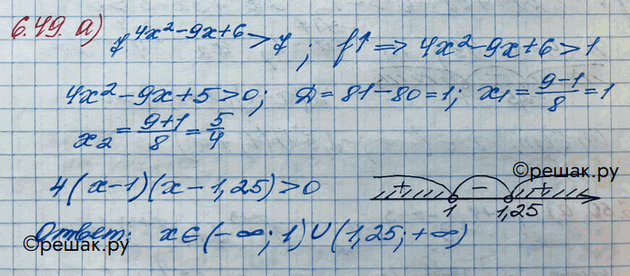 6.49. а) 7^(4x²-9x+6) > 7; f↑ => 4x²-9x+6 > 1
4x²-9x+5 > 0; D = 81-80 = 1; x₁ = (9-1)/8 = 1
x₂ = (9+1)/8 = 5/4
©решак.ру
4(x-1)(x-1,25) > 0
+ - +
1 1,25
Ответ: x∈(-∞; 1)∪(1,25; +∞)
©решак.ру